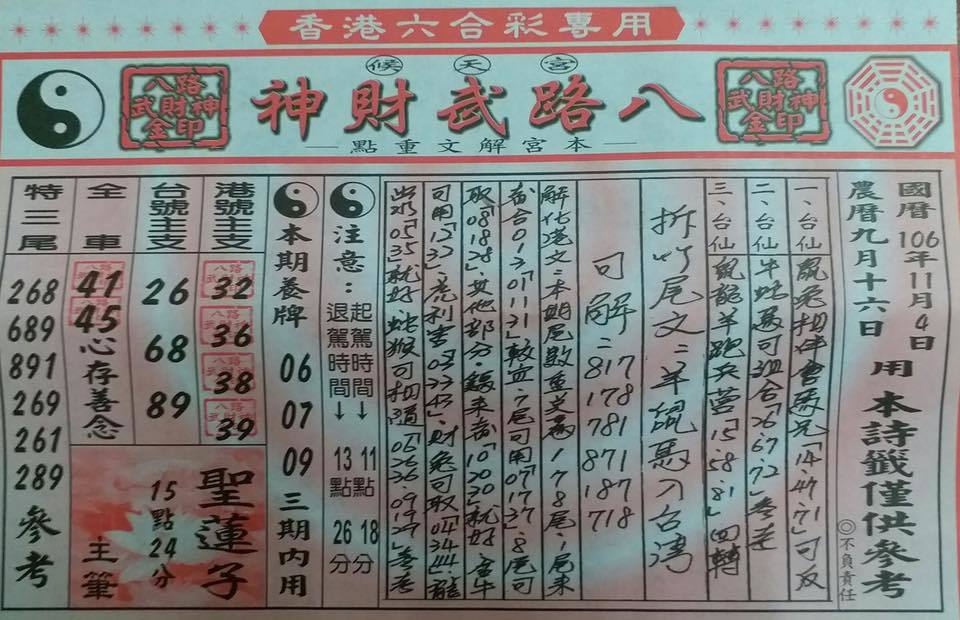 香港六合彩專用
宮天候
八路武財神
八路武財神金印
八路武財神金印
本宮解文重點
國曆106年11月4日
農曆九月十六日
用
本詩籤僅供參考
◎不負責任
一、台仙鼠兔相伴會馬兄「14.47.71」可双
二、台仙牛蛇馬可組合「26.67.72」
三、台仙鼠龍羊跑兵營「15.58.81」回轉
拆竹尾文:羊鼠馬入台灣
可解:817 178 781 871 187 718
解化港文:本期尾數重支為178尾,1尾來
合013「01.11.31」較血,7尾可用「07.17.37」8尾可
取「08.18.28」其他部分,錢來「10.20.30」就好
可用「12.32」虎利吉03.33.43,財兔可取04.34.44龍
「05.35」就好,蛇猴可相通「06.26.36 09.19.29」參考
注意:
起駕時間→11點18分
退駕時間→13點26分
本期養牌
06
07
09
三期內用
港號主支
32
36
38
39
台號主支
26
68
89
聖蓮子
15點24分
主筆
全車
41
45
心存善念
特三尾
268
689
891
269
261
289
參考